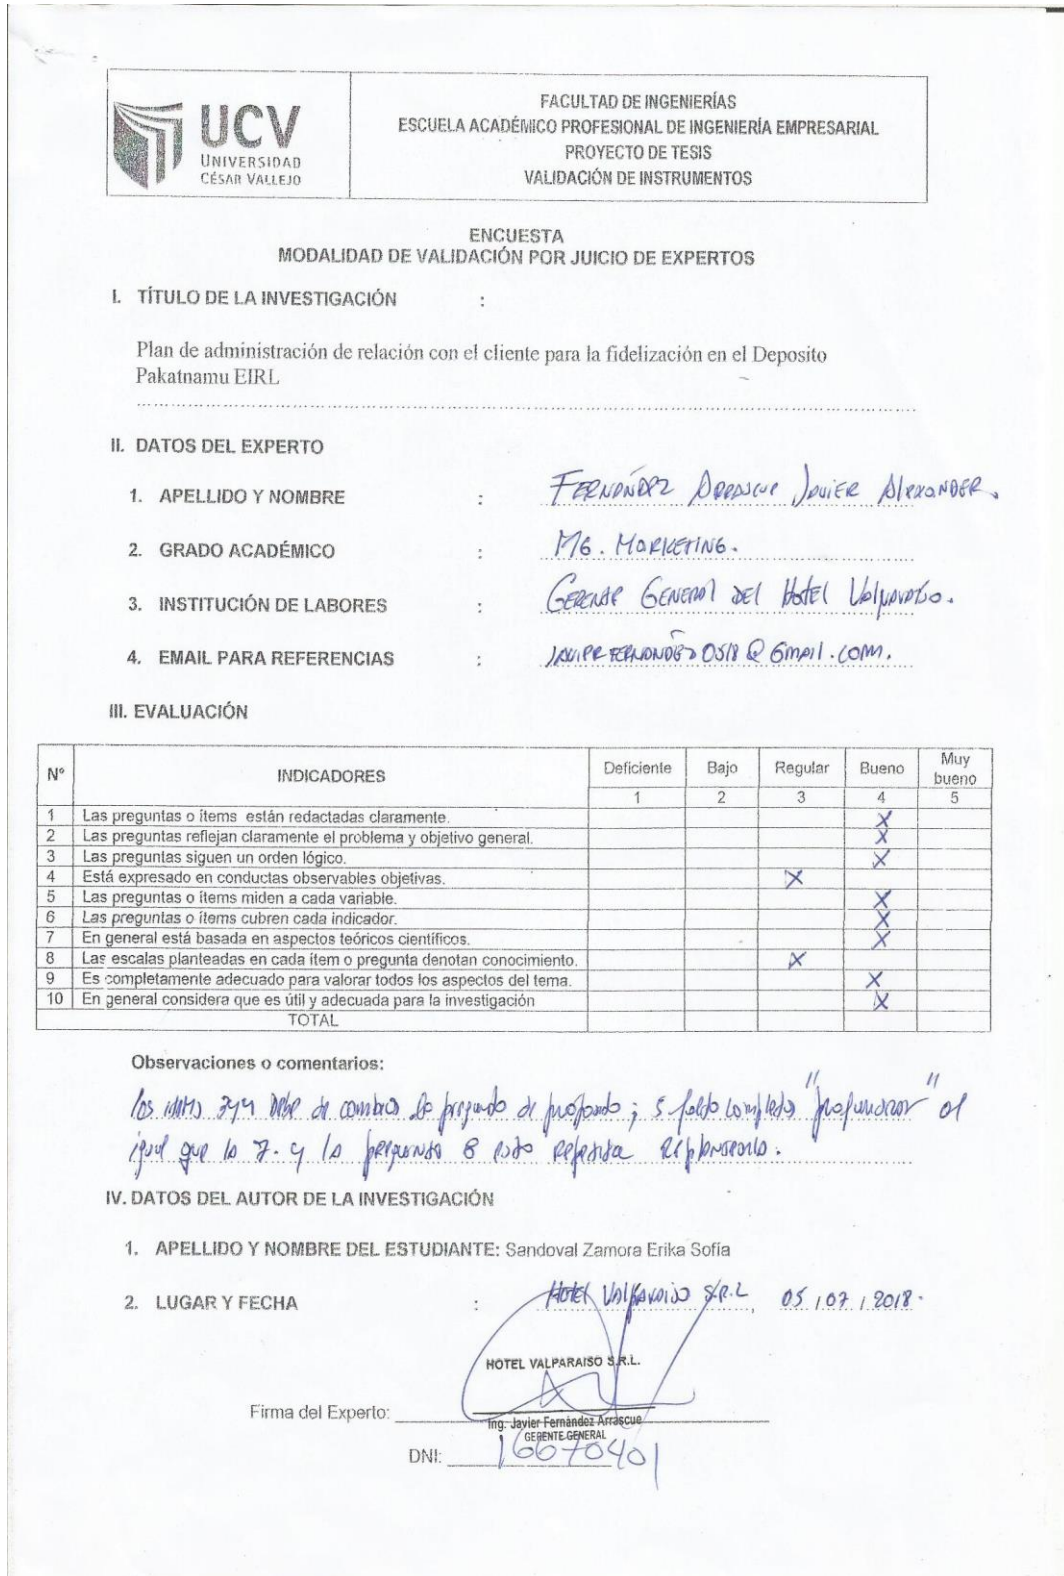 UCV
UNIVERSIDAD
CÉSAR VALLEJO
FACULTAD DE INGENIERÍAS
ESCUELA ACADÉMICO PROFESIONAL DE INGENIERÍA EMPRESARIAL
PROYECTO DE TESIS
VALIDACIÓN DE INSTRUMENTOS
ENCUESTA
MODALIDAD DE VALIDACIÓN POR JUICIO DE EXPERTOS
I. TÍTULO DE LA INVESTIGACIÓN :
Plan de administración de relación con el cliente para la fidelización en el Deposito
Pakatnamu EIRL
II. DATOS DEL EXPERTO
1. APELLIDO Y NOMBRE : FERNÁNDEZ ARRASCUE JAVIER ALEXANDER.
2. GRADO ACADÉMICO : MG. MARKETING.
3. INSTITUCIÓN DE LABORES : GERENTE GENERAL DEL HOTEL VALPARAISO.
4. EMAIL PARA REFERENCIAS : JAVIERFERNANDEZ0518@GMAIL.COM.
III. EVALUACIÓN
N° INDICADORES Deficiente Bajo Regular Bueno Muy bueno
1 2 3 4 5
1 Las preguntas o ítems están redactadas claramente. X
2 Las preguntas reflejan claramente el problema y objetivo general. X
3 Las preguntas siguen un orden lógico. X
4 Está expresado en conductas observables objetivas. X
5 Las preguntas o ítems miden a cada variable. X
6 Las preguntas o ítems cubren cada indicador. X
7 En general está basada en aspectos teóricos científicos. X
8 Las escalas planteadas en cada ítem o pregunta denotan conocimiento. X
9 Es completamente adecuado para valorar todos los aspectos del tema. X
10 En general considera que es útil y adecuada para la investigación X
TOTAL
Observaciones o comentarios:
los 3 y 4 de de ; 5 "profundizar" al
igual que la 7. y la pregunta 8 esta repetida
IV. DATOS DEL AUTOR DE LA INVESTIGACIÓN
1. APELLIDO Y NOMBRE DEL ESTUDIANTE: Sandoval Zamora Erika Sofía
2. LUGAR Y FECHA : HOTEL VALPARAISO S.R.L, 05/07/2018.
HOTEL VALPARAISO S.R.L.
Firma del Experto:
Ing. Javier Fernández Arrascue
GERENTE GENERAL
DNI: 16670401